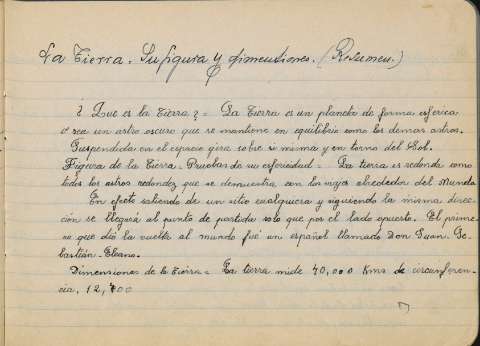 La Tierra. Su figura y dimensiones. (Resumen.)
¿ Que es la Tierra? = La Tierra es un planeta de forma esferica
o sea un astro oscuro que se mantiene en equilibrio como los demas astros.
Suspendida en el espacio gira sobre si misma y en torno del Sol.
Figura de la Tierra. Pruebas de su esfericidad = La tierra es redonda como
todos los astros redondez que se demuestra con los viajes alrededor del Mundo
En efecto saliendo de un sitio cualquiera y siguiendo la misma direc-
ción se llegará al punto de partida solo que por el lado opuesto. El prime-
ro que dió la vuelta al mundo fué un español llamado Don Juan. Se-
bastián. Elcano.
Dimensiones de la Tierra = La tierra mide 40,000 Kms de circunferen-
cia. 12,700